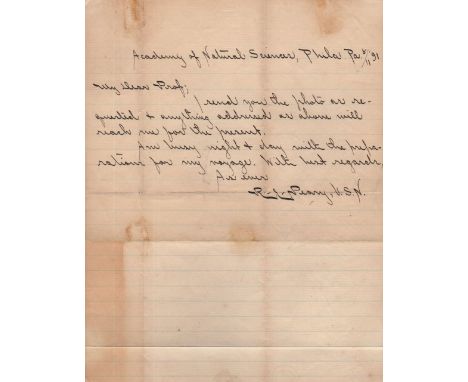 Academy of Natural Sciences, Phila Pa 5/11 91
My Dear Prof;
I send you the photo as re-
quested & anything addressed as above will
reach me for the present.
Am busy night & day with the prepa-
rations for my voyage. With best regards,
As ever
R. E. Peary, U.S.N.